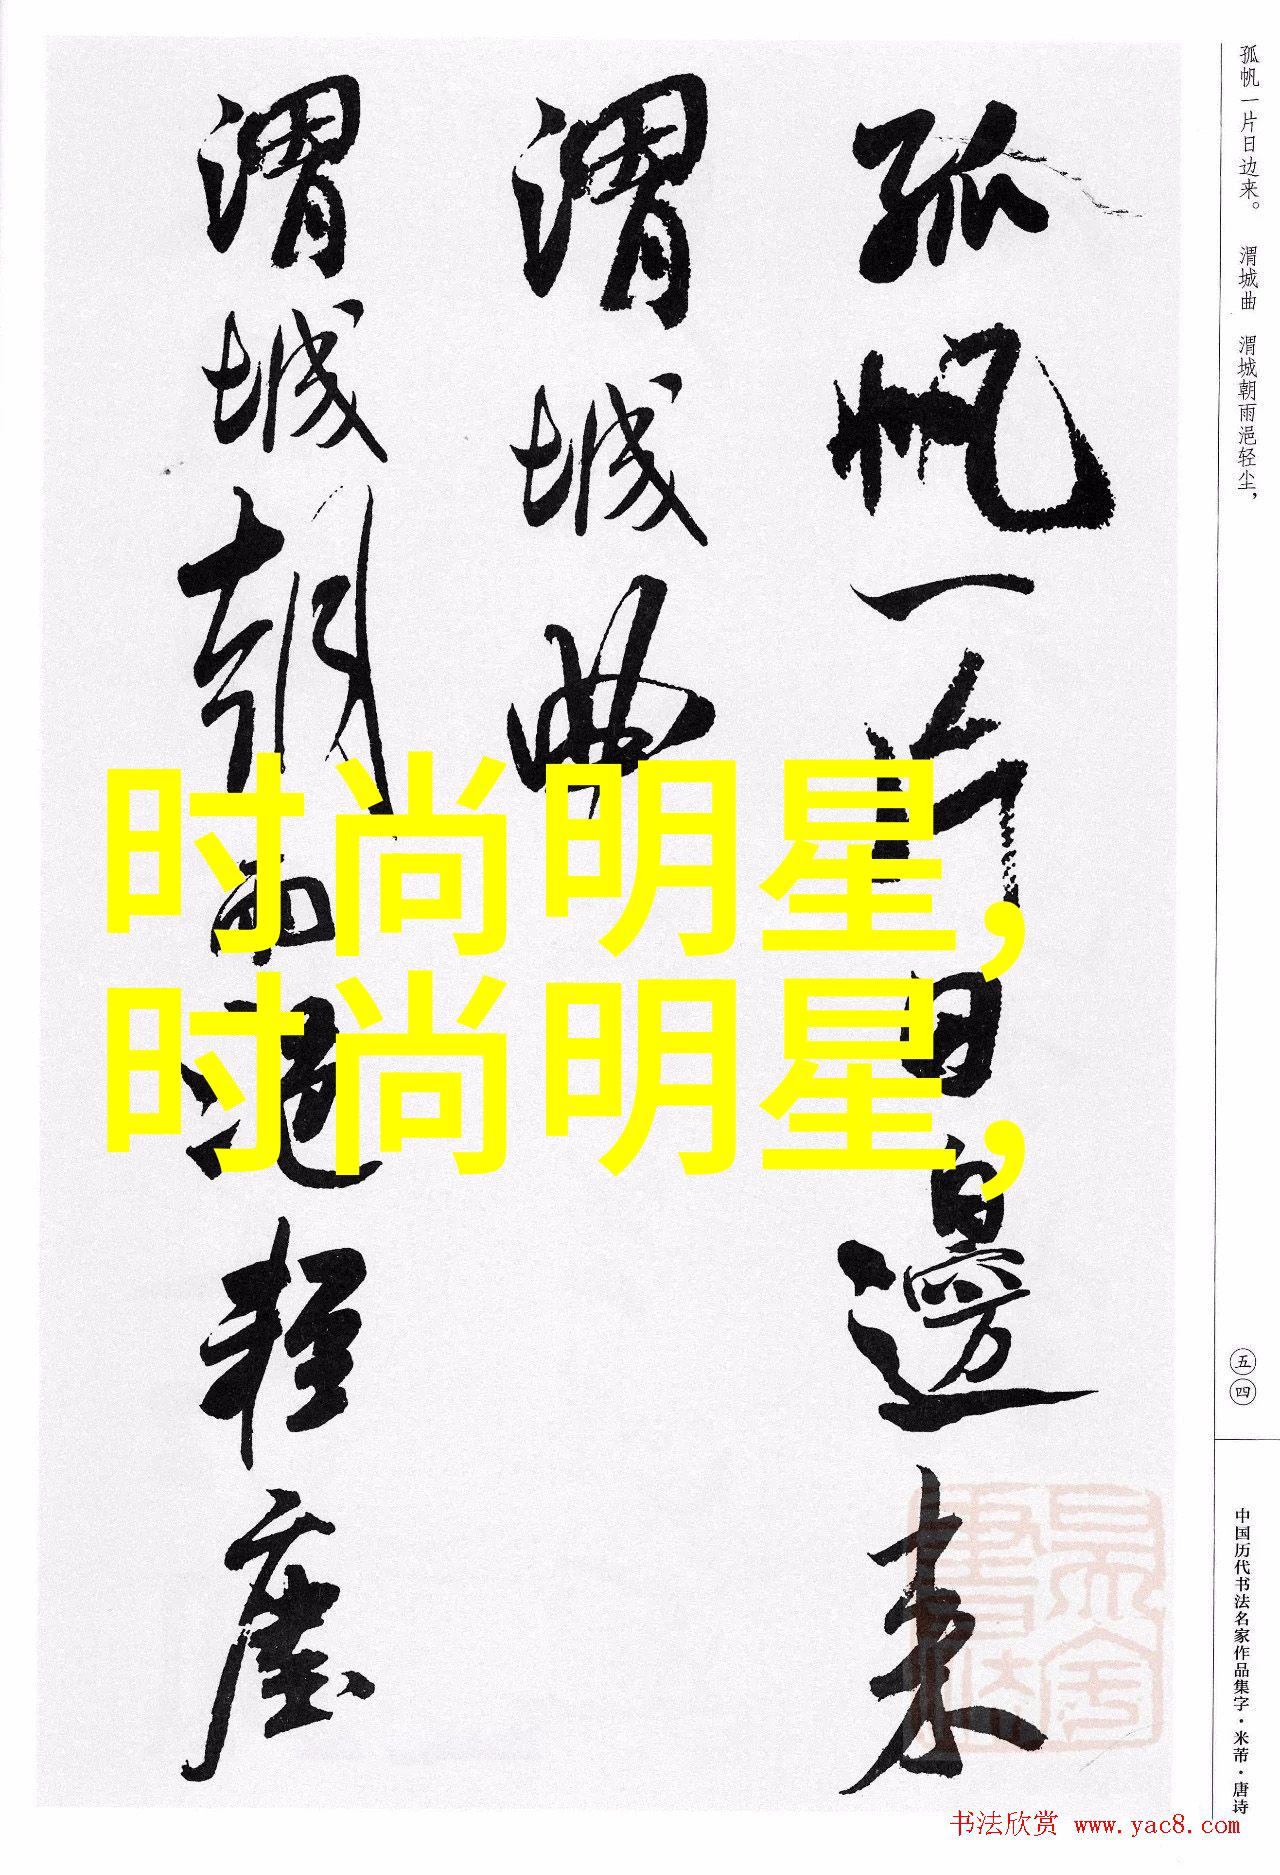 孤帆一片日边来。 渭城曲 渭城朝雨浥轻尘，
孤帆一片日邊来
渭城曲
渭城朝雨浥轻塵
时尚明星，
时尚明星，
五四
中国历代书法名家作品集字·米芾·唐诗
书法欣赏 www.yac8.com